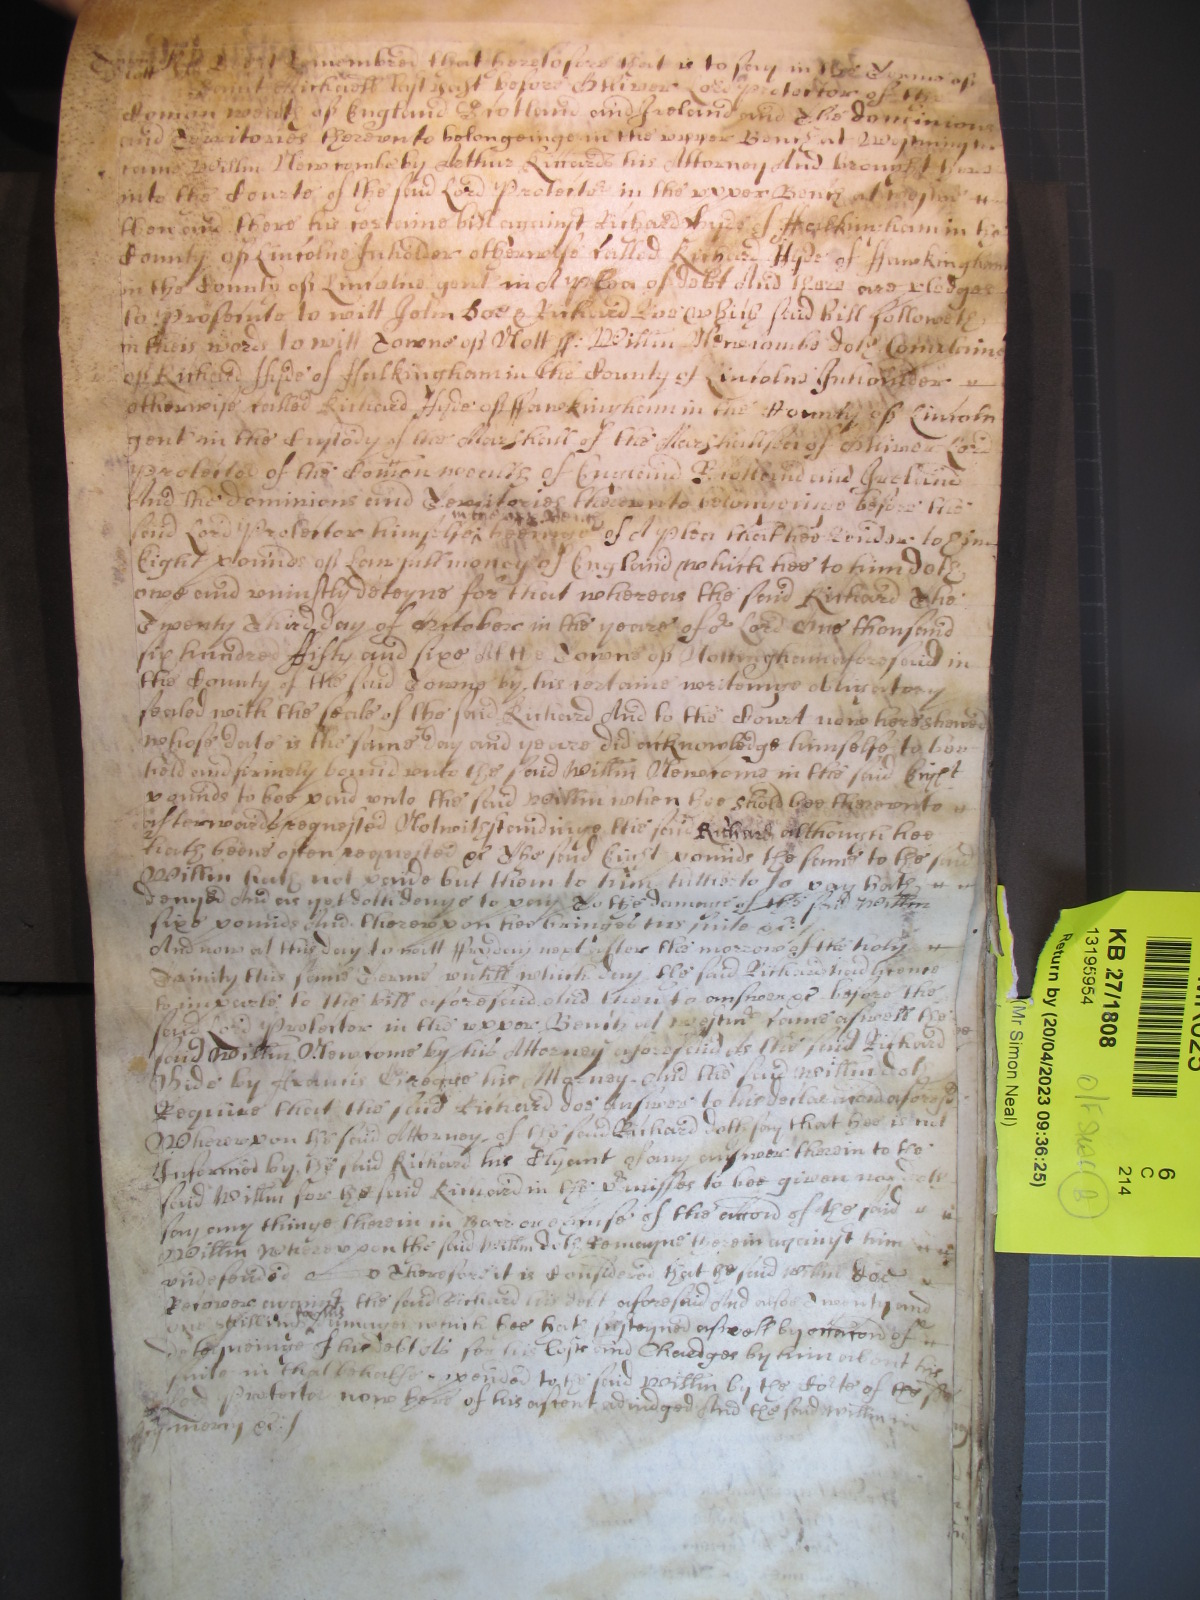 Bee it Remembred that heretofore that is to say in the Terme of
Saint Michaell last past before Oliver Lord Protector of the
Comon wealth of England Scotland and Ireland and the dominions
and Territories thereunto belongeinge in the upper Bench at Westminster
came Willm Newcombe by Arthur Riccards his Attorney And brought
into the Courte of the said Lord Protector in the upper Bench at Westmr
then and there his certaine bill against Richard Hyde of Halkingham in the
County of Lincolne Inholder otherwise called Richard Hyde of Hawkingham
in the County of Lincolne gent in A plea of debt And there are pledges
to prosecute to witt John Doe & Richard Roe which said bill followeth
in theis words to witt Towne of Nott ss: Willm Newcombe doth Complaine
of Richard Hyde of Halkingham in the County of Lincolne Inholder
otherwise called Richard Hyde of Hawkingham in the County of Lincoln
gent in the Custody of the Marshall of the Marshallsea of Oliver Lord
Protector of the Comon wealth of England Scotland and Ireland
And the dominions and Territories thereunto belongeinge before the
said Lord Protector himselfe in the upper Bench beeinge of A plea that hee Render to him
Eight pounds of Lawfull money of England which hee to him doth
owe and uniustly deteyne for that whereas the said Richard the
Twenty Third day of October in the yeare of or Lord One thousand
six hundred fifty and sixe At the Towne of Nottingham aforesaid in
the County of the said Towne by his certaine writeinge obligatory
sealed with the seale of the said Richard And to the Court now here shewed
whose date is the same day and yeare did acknowledge himselfe to bee
held and firmely bound unto the said Willm Newcome in the said Eight
pounds to bee paid unto the said Willm when hee shold bee thereunto
afterwards requested Notwithstandinge the said Richard although hee
hath beene often requested &c The said Eight pounds the same to the said
Willm hath not paide but them to him hitherto to pay hath
denyed And as yet doth denye to pay To the damage of the said Willm
sixe pounds And thereupon hee bringes this suite &c:/
And now at this day to witt Fryday next after the morrow of the holy
Trinity this same Terme untill which day the said Richard had licence
to imparle to the bill aforesaid And then to answere &c before the
said Lord Protector in the upper Bench at Westmr came aswell the
said Willm Newcome by his Attorney aforesaid As the said Richard
Hide by Francis his Attorney And the said Willm doth
Require that the said Richard doe answer to his declaracion aforesd
Whereupon the said Attorney of the said Richard doth say that hee is not
Informed by the said Richard his Clyant of any answer therein to the
said Willm for the said Richard in the p'misses to bee given nor doth
say any thinge therein in Barr or of the accon of the said
Willm Whereupon the said Willm doth Remayne therein against him
undefended Therefore it is Considered that the said Willm doe
Recover against the said Richard his debt aforesaid And alsoe Twenty and
one shillings for his damages which hee hath susteyned aswell by occacion of
deteyneinge of his debt As for his Costs and Chardges by him about his
suite in that behalfe expended to the said Willm by the Corte of the said
Lord Protector now here of his assent adiudged And the said Willm in
mercy &c:/
KB 27/1808
13195954
Return by (20/04/2023 09:36:25)
(Mr Simon Neal)
6
C
214